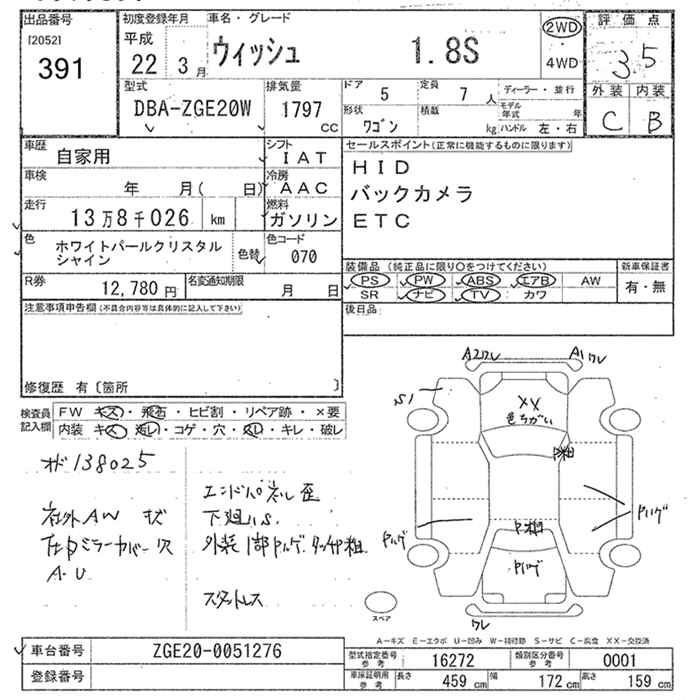 出品番号
[2052]
391
初度登録年月
平成
22 3月
車名・グレード
ウィッシュ 1.8S
2WD
・
4WD
評価点
3.5
外装 内装
C B
型式
DBA-ZGE20W
排気量
1797
cc
ドア 5
定員 7 人
形状 ワゴン
積載 kg
ディーラー・並行
モデル年式 年
ハンドル 左・右
車歴
自家用
シフト
IAT
車検
年 月( 日)
冷房
AAC
走行
13万8千026 km
燃料
ガソリン
色
ホワイトパールクリスタル
シャイン
色替
色コード
070
R券
12,780 円
名変通知期限
月 日
セールスポイント(正常に機能するものに限ります)
HID
バックカメラ
ETC
装備品(純正品に限り○をつけてください)
PS PW ABS エアB AW
SR ナビ TV カワ
新車保証書
有・無
後日品:
注意事項申告欄(不具合内容等は具体的に記入して下さい)
修復歴 有〔箇所 〕
検査員
記入欄
FW キズ・飛石・ヒビ割・リペア跡・×要
内装 キズ・汚レ・コゲ・穴・凹レ・キレ・破レ
138025
社外AW 状
ミラーカバー欠
A.U
エンドパネル歪
下廻りS.
外装1部
スタットレス
A2ワレ
A1ワレ
S1
XX
色ちがい
P粗
P粗
Pハゲ
Pハゲ
Pハゲ
ワレ
スペア
A-キズ E-エクボ U-凹み W-補修跡 S-サビ C-腐食 XX-交換済
車台番号
ZGE20-0051276
登録番号
型式指定番号
参考
16272
類別区分番号
参考
0001
車庫証明用
参考
長さ 459 cm
幅 172 cm
高さ 159 cm